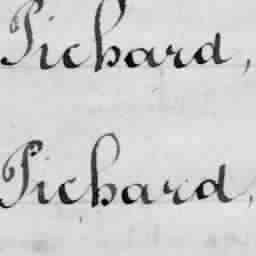 Pichard,
Pichard,